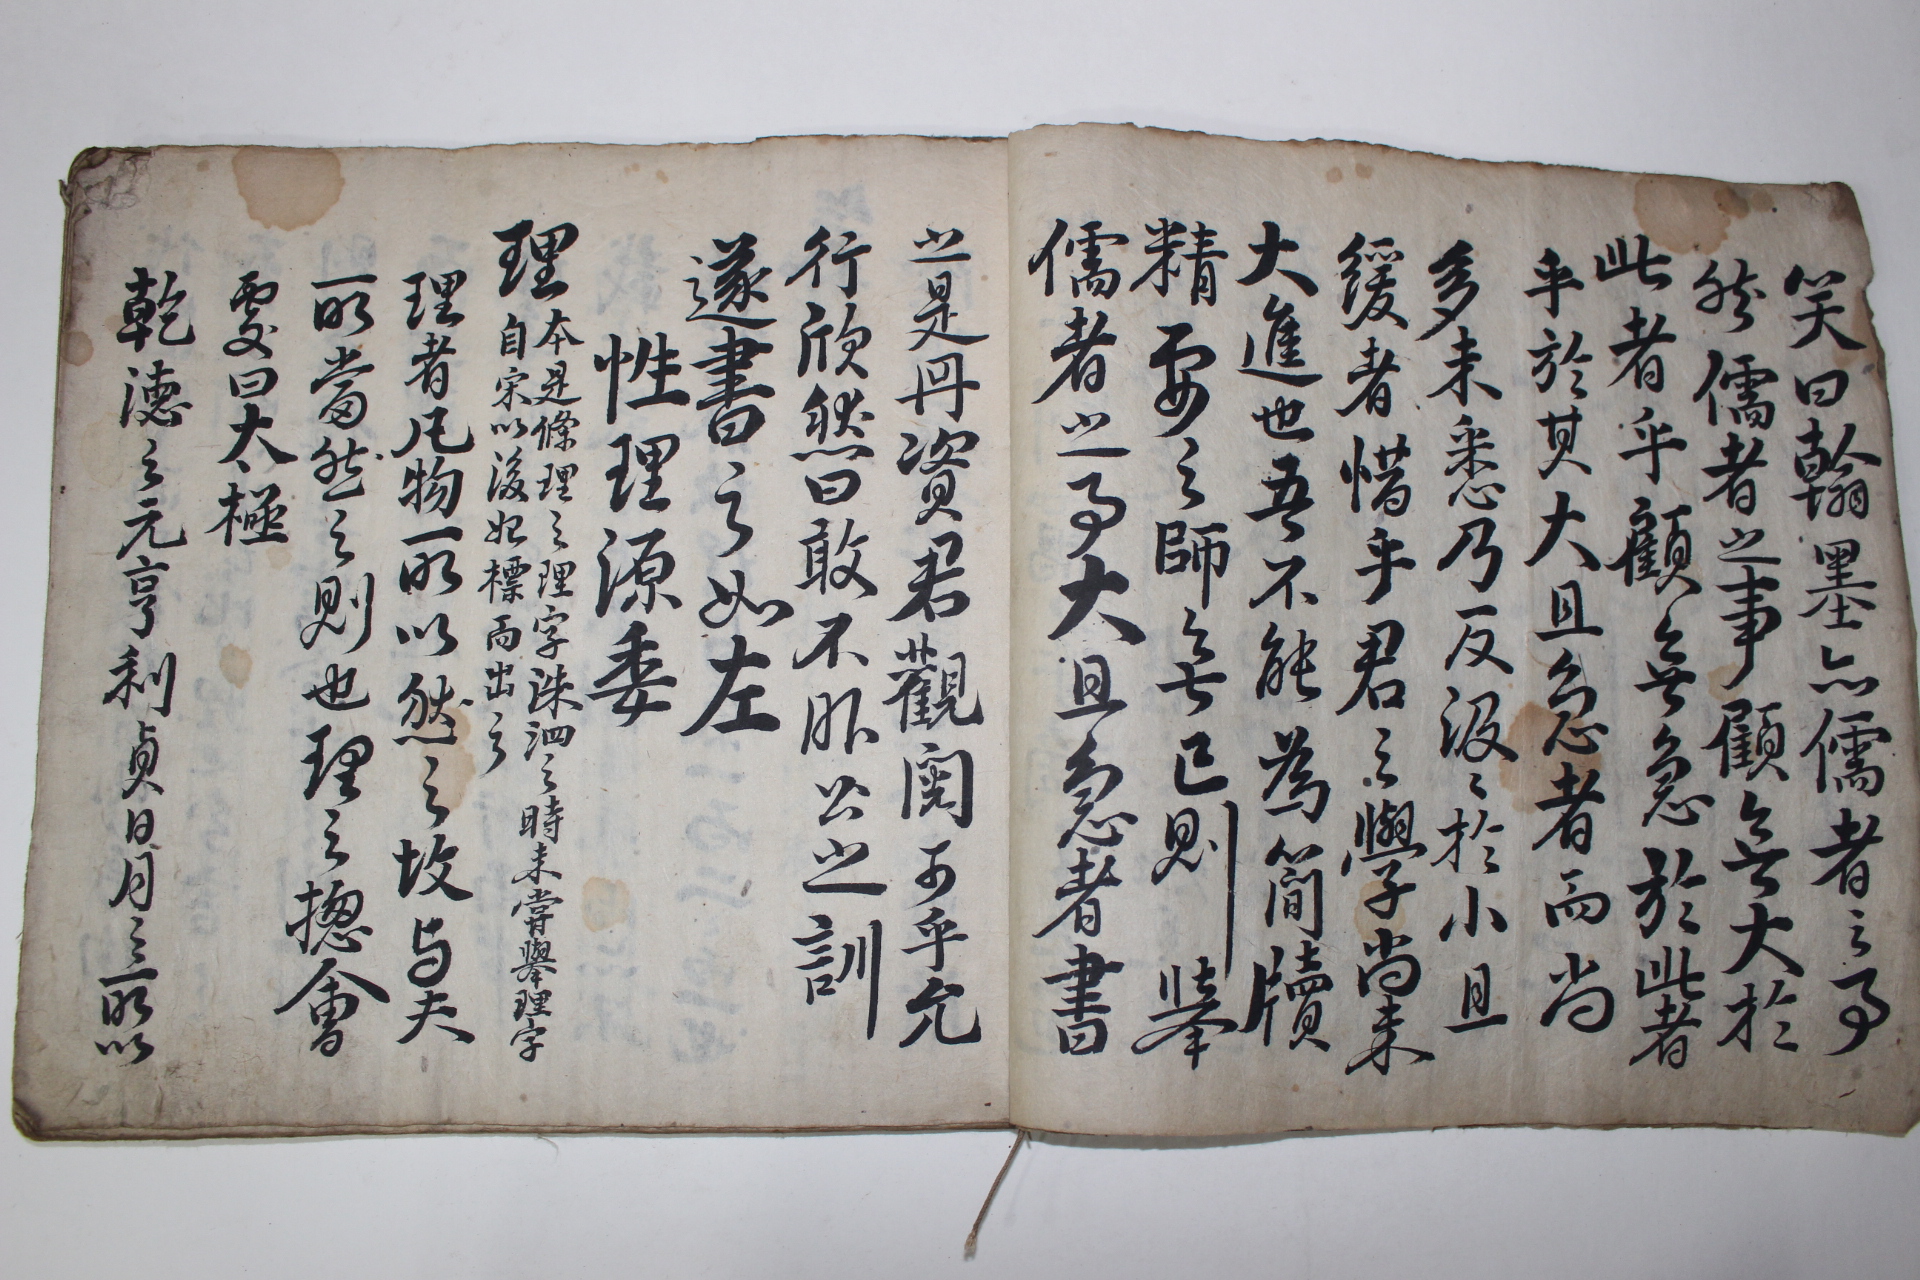 笑曰翰墨亦儒者之事
然儒者之事顧無大於
此者乎顧無急於此者
乎於其大且急者而尚
多未悉乃反汲〻於小且
緩者惜乎君之學尚未
大進也吾不能為簡牘
精要之師無已則擧
儒者之事大且急者書
之是冊資君觀閱可乎允
行欣然曰敢不服公之訓
遂書之如左
性理源委
理
本是條理之理字洙泗之時未嘗擧理字
自宋以後始標而出之
理者凡物所以然之故与夫
所當然之則也理之摠會
處曰太極
乾德之元亨利貞日月之所以